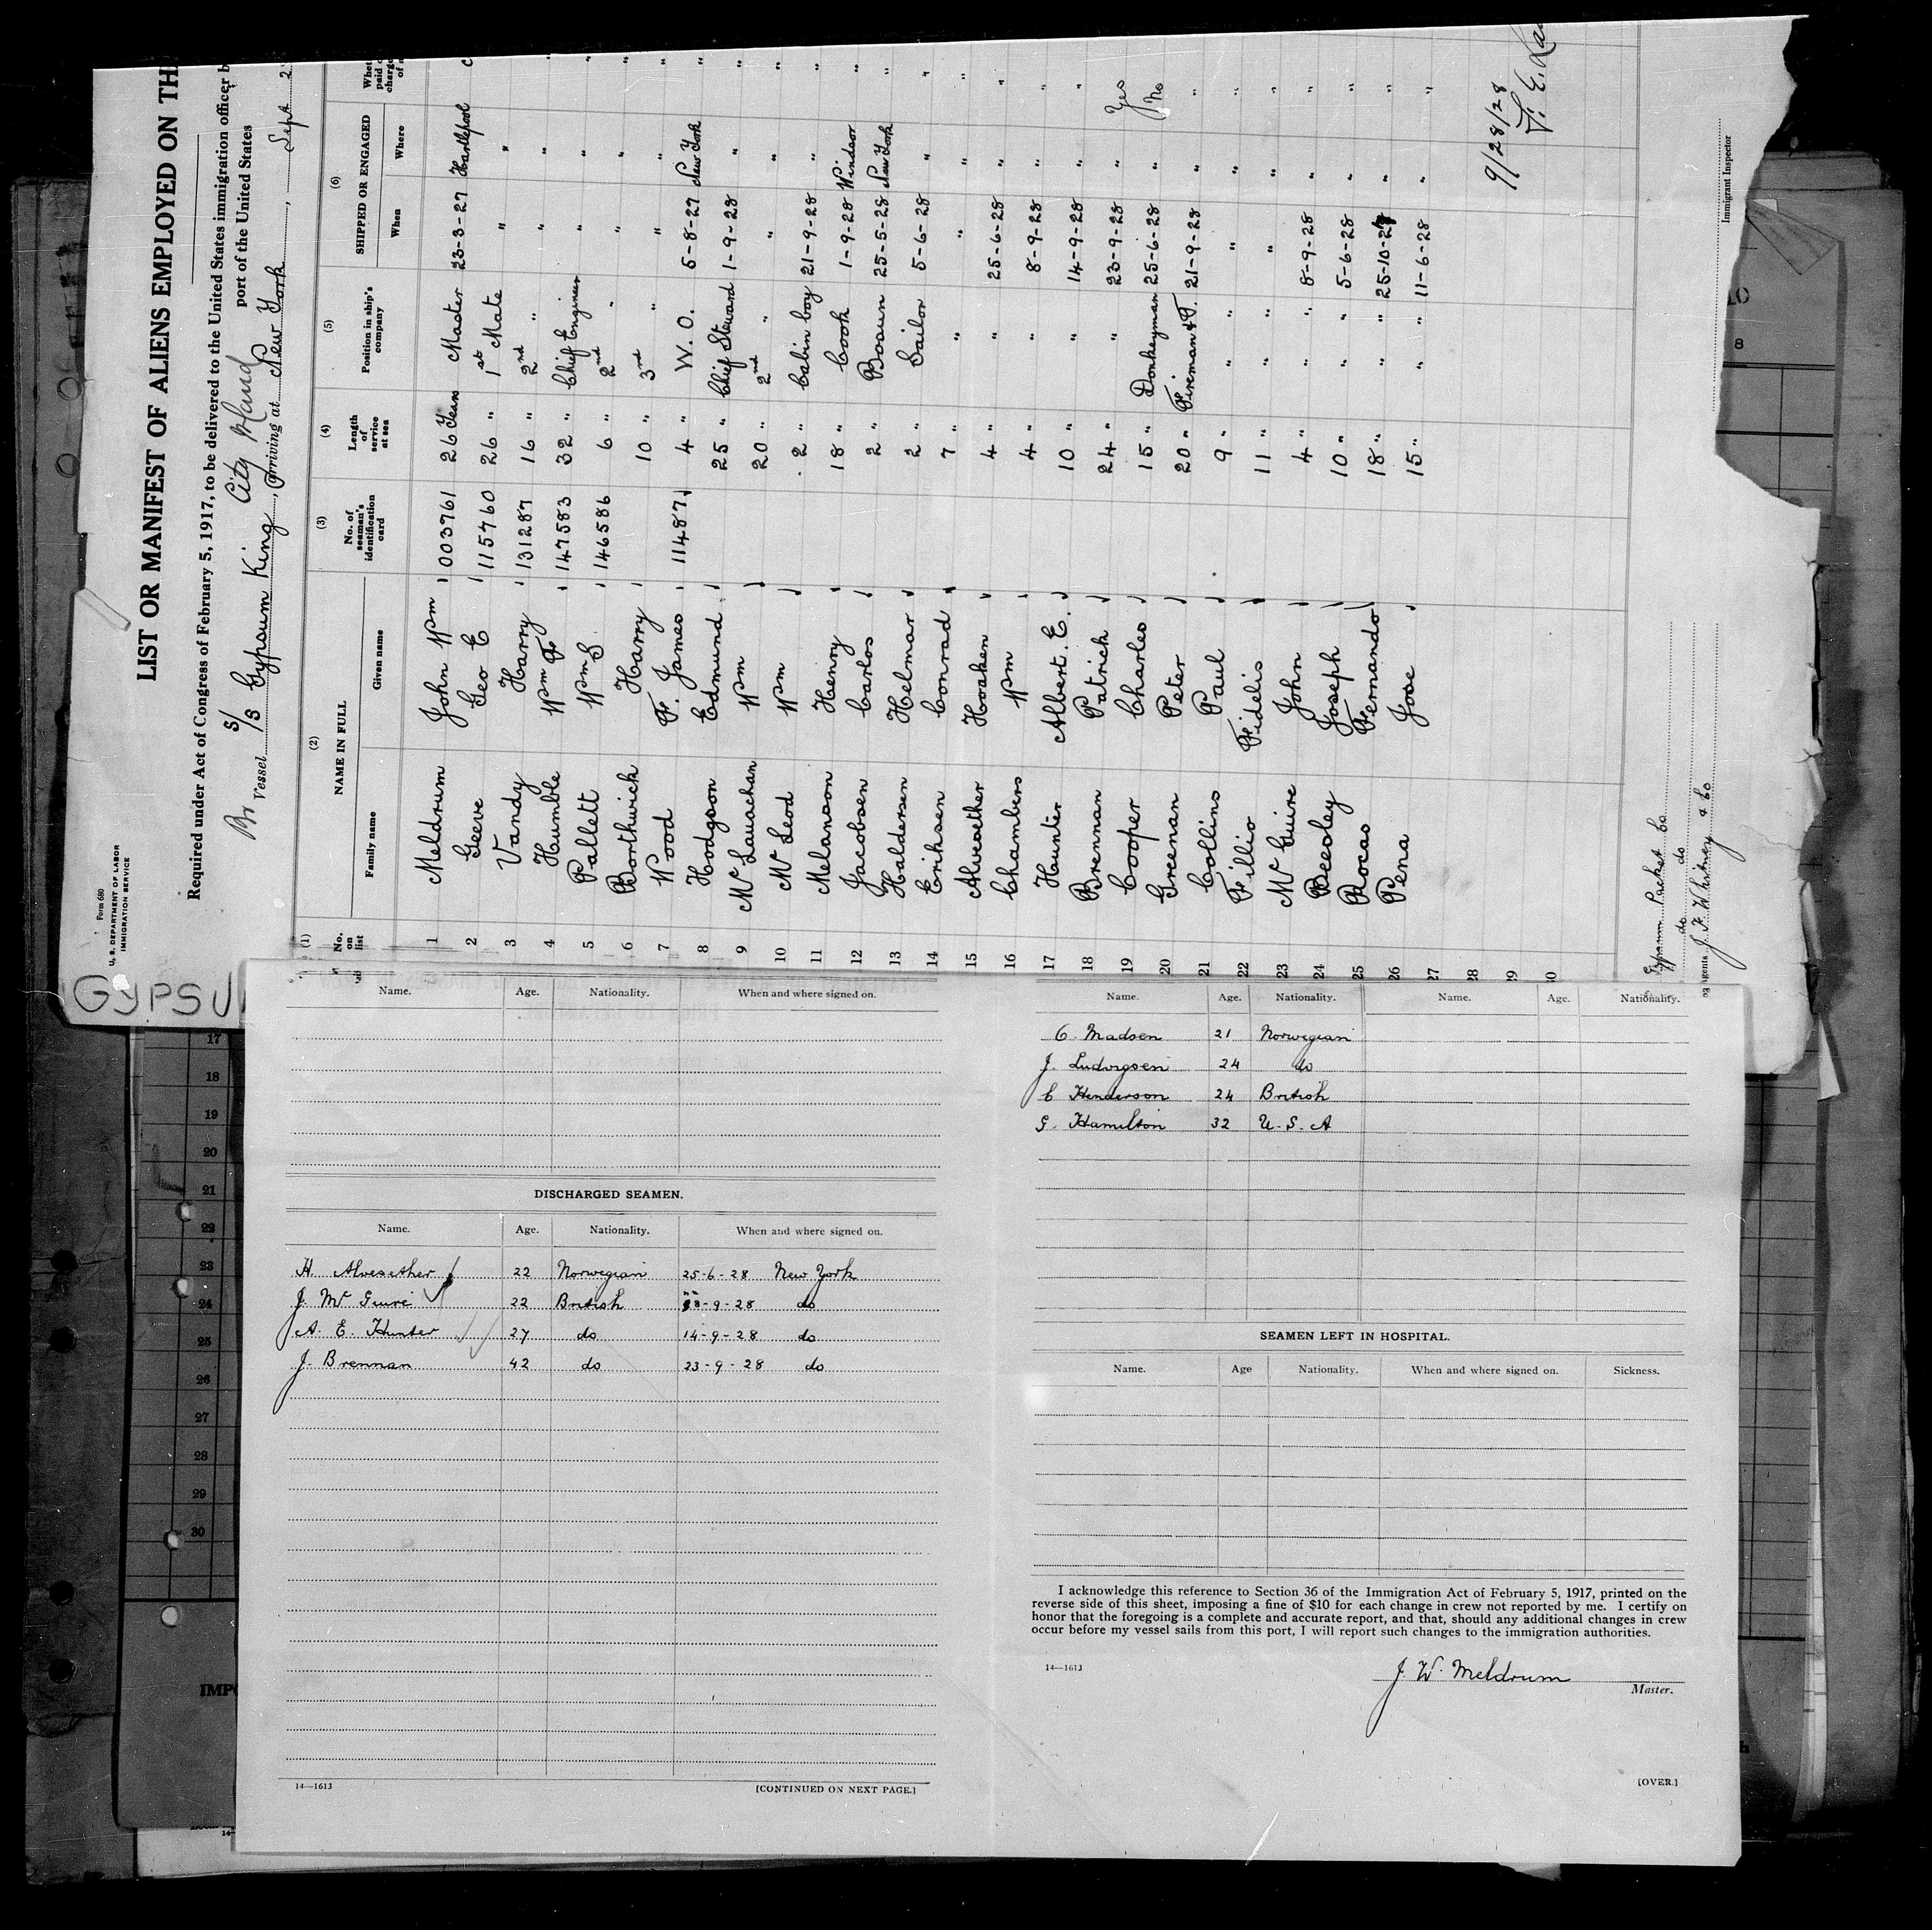 Form 680
U. S. DEPARTMENT OF LABOR
IMMIGRATION SERVICE
LIST OR MANIFEST OF ALIENS EMPLOYED ON TH
Required under Act of Congress of February 5, 1917, to be delivered to the United States immigration officer b
port of the United States
Br Vessel S/S Gypsum King, arriving at New York, Sept 2
City Island
(1) (2) (3) (4) (5) (6)
No. on list NAME IN FULL No. of seaman's identification card Length of service at sea Position in ship's company SHIPPED OR ENGAGED
Family name Given name When Where
1 Meldrum John Wm 1003761 26 Years Master 23-3-27 Hartlepool
2 Geeve Geo E 115760 26 " 1st Mate " "
3 Vandy Harry 131287 16 " 2nd " " "
4 Humble Wm F 147583 32 " Chief Engineer " "
5 Pallett Wm S 146586 6 " 2nd " " "
6 Borthwick Harry 10 " 3rd " " "
7 Wood F. James 114871 4 " W. O. 5-8-27 New York
8 Hodgson Edmund 25 " Chief Steward 1-9-28 "
9 McLauachan Wm 20 " 2nd " " "
10 McLeod Wm 2 " Cabin boy 21-9-28 "
11 Melanson Henry 18 " Cook 1-9-28 Windsor
12 Jacobsen Carlos 2 " Bosun 25-5-28 New York
13 Haldersen Helmar 2 " Sailor 5-6-28 "
14 Eriksen Conrad 7 " " " "
15 Alvesether Haaken 4 " " 25-6-28 "
16 Chambers Wm 4 " " 8-9-28 "
17 Hunter Albert. E. 10 " " 14-9-28 "
18 Brennan Patrick 24 " " 23-9-28 " Yes
19 Cooper Charles 15 " Donkeyman 25-6-28 " No
20 Greenan Peter 20 " Fireman & T. 21-9-28 " "
21 Collins Paul 9 " " " " "
22 Fillio Fidelis 11 " " " " "
23 McGuire John 4 " " 8-9-28 " "
24 Beesley Joseph 10 " " 5-6-28 " "
25 Rocas Fernando 18 " " 25-10-27 " "
26 Pena Jose 15 " " 11-6-28 " "
27
28
29
30
9/28/28
Immigrant Inspector
Gypsum Packet Co
do do
Agents J. F. Whitney & Co
GYPSU
Name. Age. Nationality. When and where signed on.
DISCHARGED SEAMEN.
Name. Age. Nationality. When and where signed on.
H. Alvesether 22 Norwegian 25-6-28 New York
J. McGuire 22 British 8-9-28 do
A. E. Hunter 27 do 14-9-28 do
J. Brennan 42 do 23-9-28 do
14—1613
[CONTINUED ON NEXT PAGE.]
Name. Age. Nationality. Name. Age. Nationality.
C. Madsen 21 Norwegian
J. Ludvigsen 24 do
C Henderson 24 British
G. Hamilton 32 U.S.A
SEAMEN LEFT IN HOSPITAL.
Name. Age Nationality. When and where signed on. Sickness.
I acknowledge this reference to Section 36 of the Immigration Act of February 5, 1917, printed on the
reverse side of this sheet, imposing a fine of $10 for each change in crew not reported by me. I certify on
honor that the foregoing is a complete and accurate report, and that, should any additional changes in crew
occur before my vessel sails from this port, I will report such changes to the immigration authorities.
14—1613
J. W. Meldrum
Master.
[OVER.]
17
18
19
20
21
22
23
24
25
26
27
28
29
30